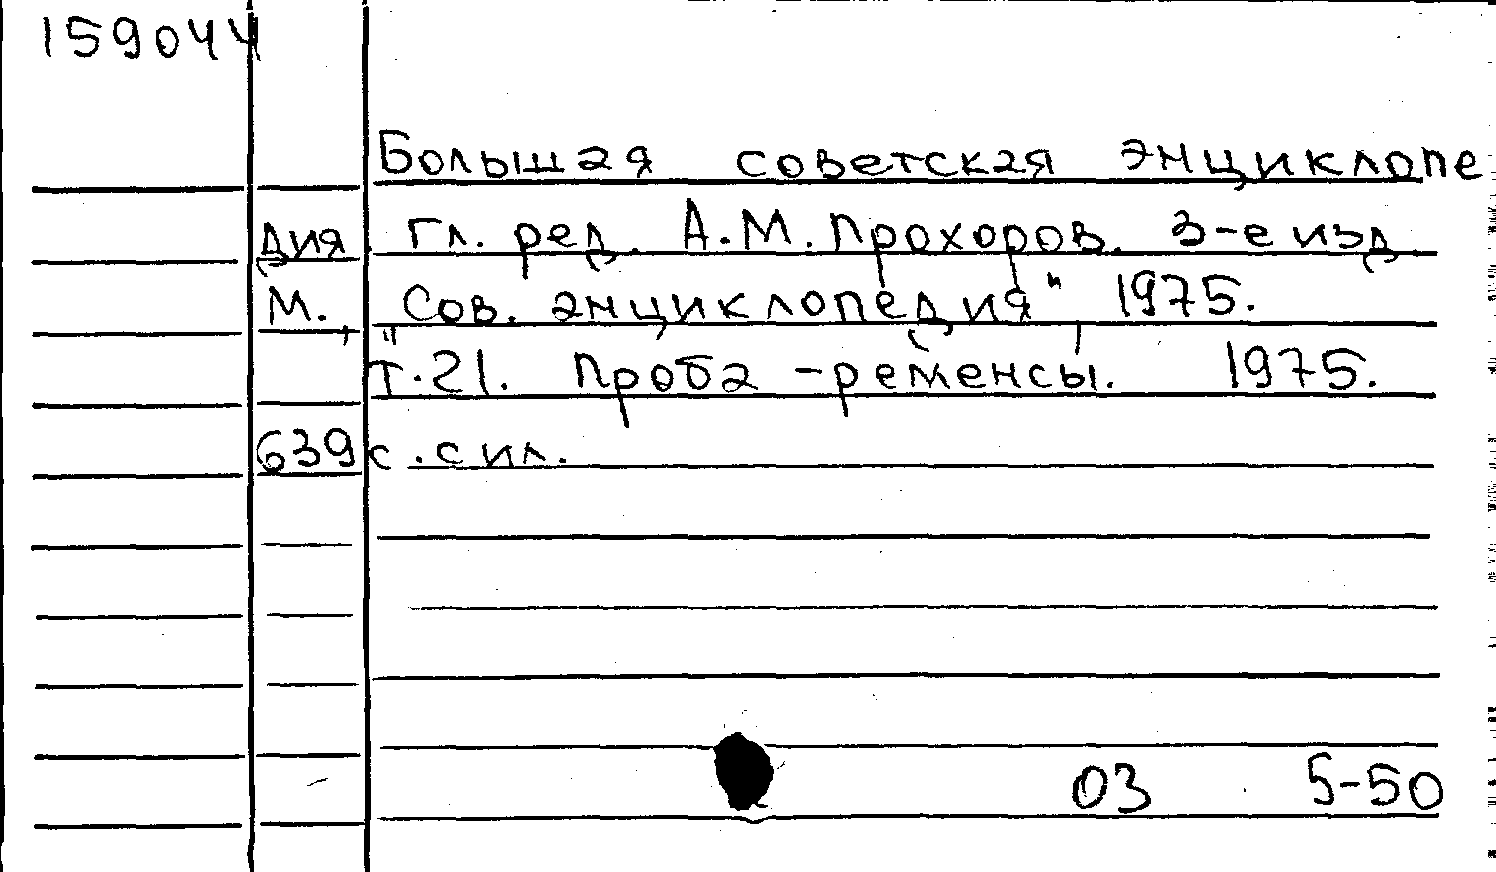 159044
Большая советская энциклопе
дия. Гл. ред. А.М. Прохоров. 3-е изд.
М., „Сов. энциклопедия", 1975.
Т.21. Проба - ременсы. 1975.
639 с. с ил.
03 5-50